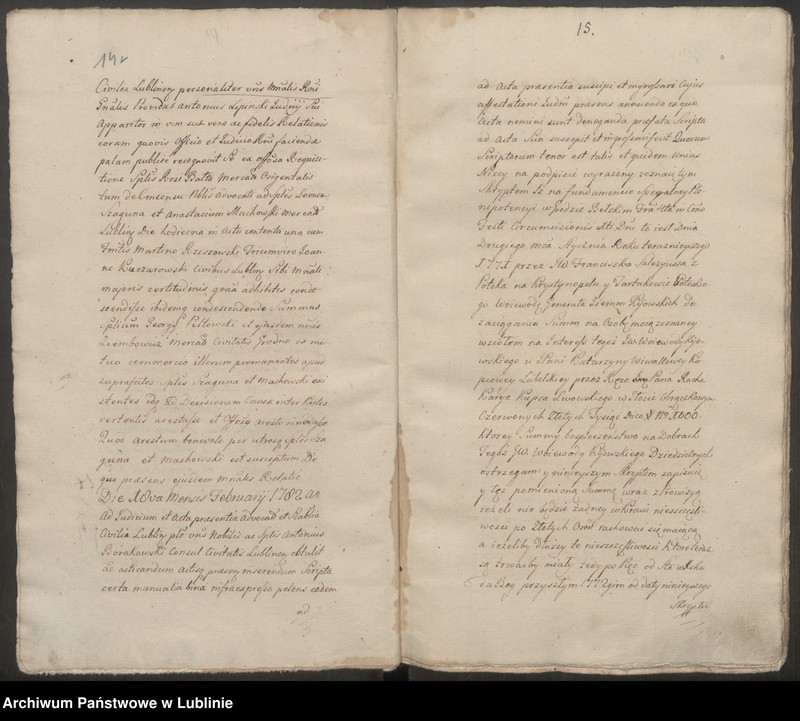 14v
Civilia Lublinen personaliter vñis Mñalis Rñi
Gñalis Providus Antonius Lipinski Judicij Sui
Apparitor in vim suæ veræ ac fidelis Relationis
coram quovis Officio et Judicio Rñi facienda
palam publice recognovit Se ea offosa Requisi-
tione Splis Rosi Mercat Orientalis
tum de Nblis Advocati ad Sples
Szaguna et Anastasium Machowski Mercato
Lublin Die hodierna in Acto contenta una cum
Fmtis Martino Rzeszowski Triumviro Joan-
ne Kuczarowski Civibus Lublin Sibi
majoris certitudinis grãa adhibitis conde
scendisse ibidemq condescendendo Summas
Splium Georgij et ejusdem
Mercat Civitatis Grodno ex mu-
tuo commercio illorum promanantes apud
suprafatos Sples Szaguna et Machowski exi
stentes idq Decisionum Causæ inter Partes
vertentis arestasse et Offoso aresto
Quod arestum benevole per utrosq sples Sza
guna et Machowski est susceptum De
quo præsens ejusdem Mñalis Relatio
Die 18va Mensis Februarij 1782 Ao
Ad Judicium et Acta præsentia Advocat et Scablia
Civilia Lublin plr vñs Nobilis ac Splis Antonius
Borakowski Consul Civitatis Lublinen obtulit
ac acticandum Actisq præsen inserendum Scripta
certa manualia bina infraexpressa petens eadem
ad
15.
ad Acta præsentia suscipi et ingrossari Cujus
affectationi Judm præsens annuendo ex quo
Acta nemini sunt deneganda præfata Scripta
ad Acta Sua suscepit et ingrossari fecit Quorum
Scriptorum tenor est talis et quidem Unius
Niżey na podpisie wyrażony zeznaię tym
Skryptem Iż na fundamencie Specyalney Ple-
nipotencyi w Grodzie Bełzkim Frã 4ta in Crño
Festi Circumcisionis Dñi to iest Dnia
Drugiego Mca Stycznia Roku teraznieyszego
1771 przez JW Franciszka Salezyusza z
Potoka na Krystynopolu y Tartakowie Potockie
go Woiewodę Generała Ziem Kijowskich do
zaciągania Summ na Osobę moią zeznaney
wziołem na Interess tegoż JW Woiewody Kijo-
wskiego u Pani Katarzyny Wiwałtowey Ku
pcowey Lubelskiey przez Ręce Pana Rocha
Kupca Lwowskiego w Złocie Obrączkowym
Czerwonych Złotych Tysiąc Dico # No 1000.
ktorey Summy bespieczenstwo na Dobrach
Tegoż JW Woiewody Kijowskiego Dziedzicznych
ostrzegam y ninieyszym Skryptem zapisuię
y tęż pomienioną Summę wraz z Prowizyą
ieżeli nie będzie żadney w Kraiu nieszczęśli-
wości po Złotych Ośm rachować się maiącą
a ieżeliby dłuższy te nieszczęśliwości ktore teraz
są trwać by miały tedy po Pięć od Sta w Roku
każdeg przyszłym 1772gim od daty ninieyszego
Skryptu
Archiwum Państwowe w Lublinie